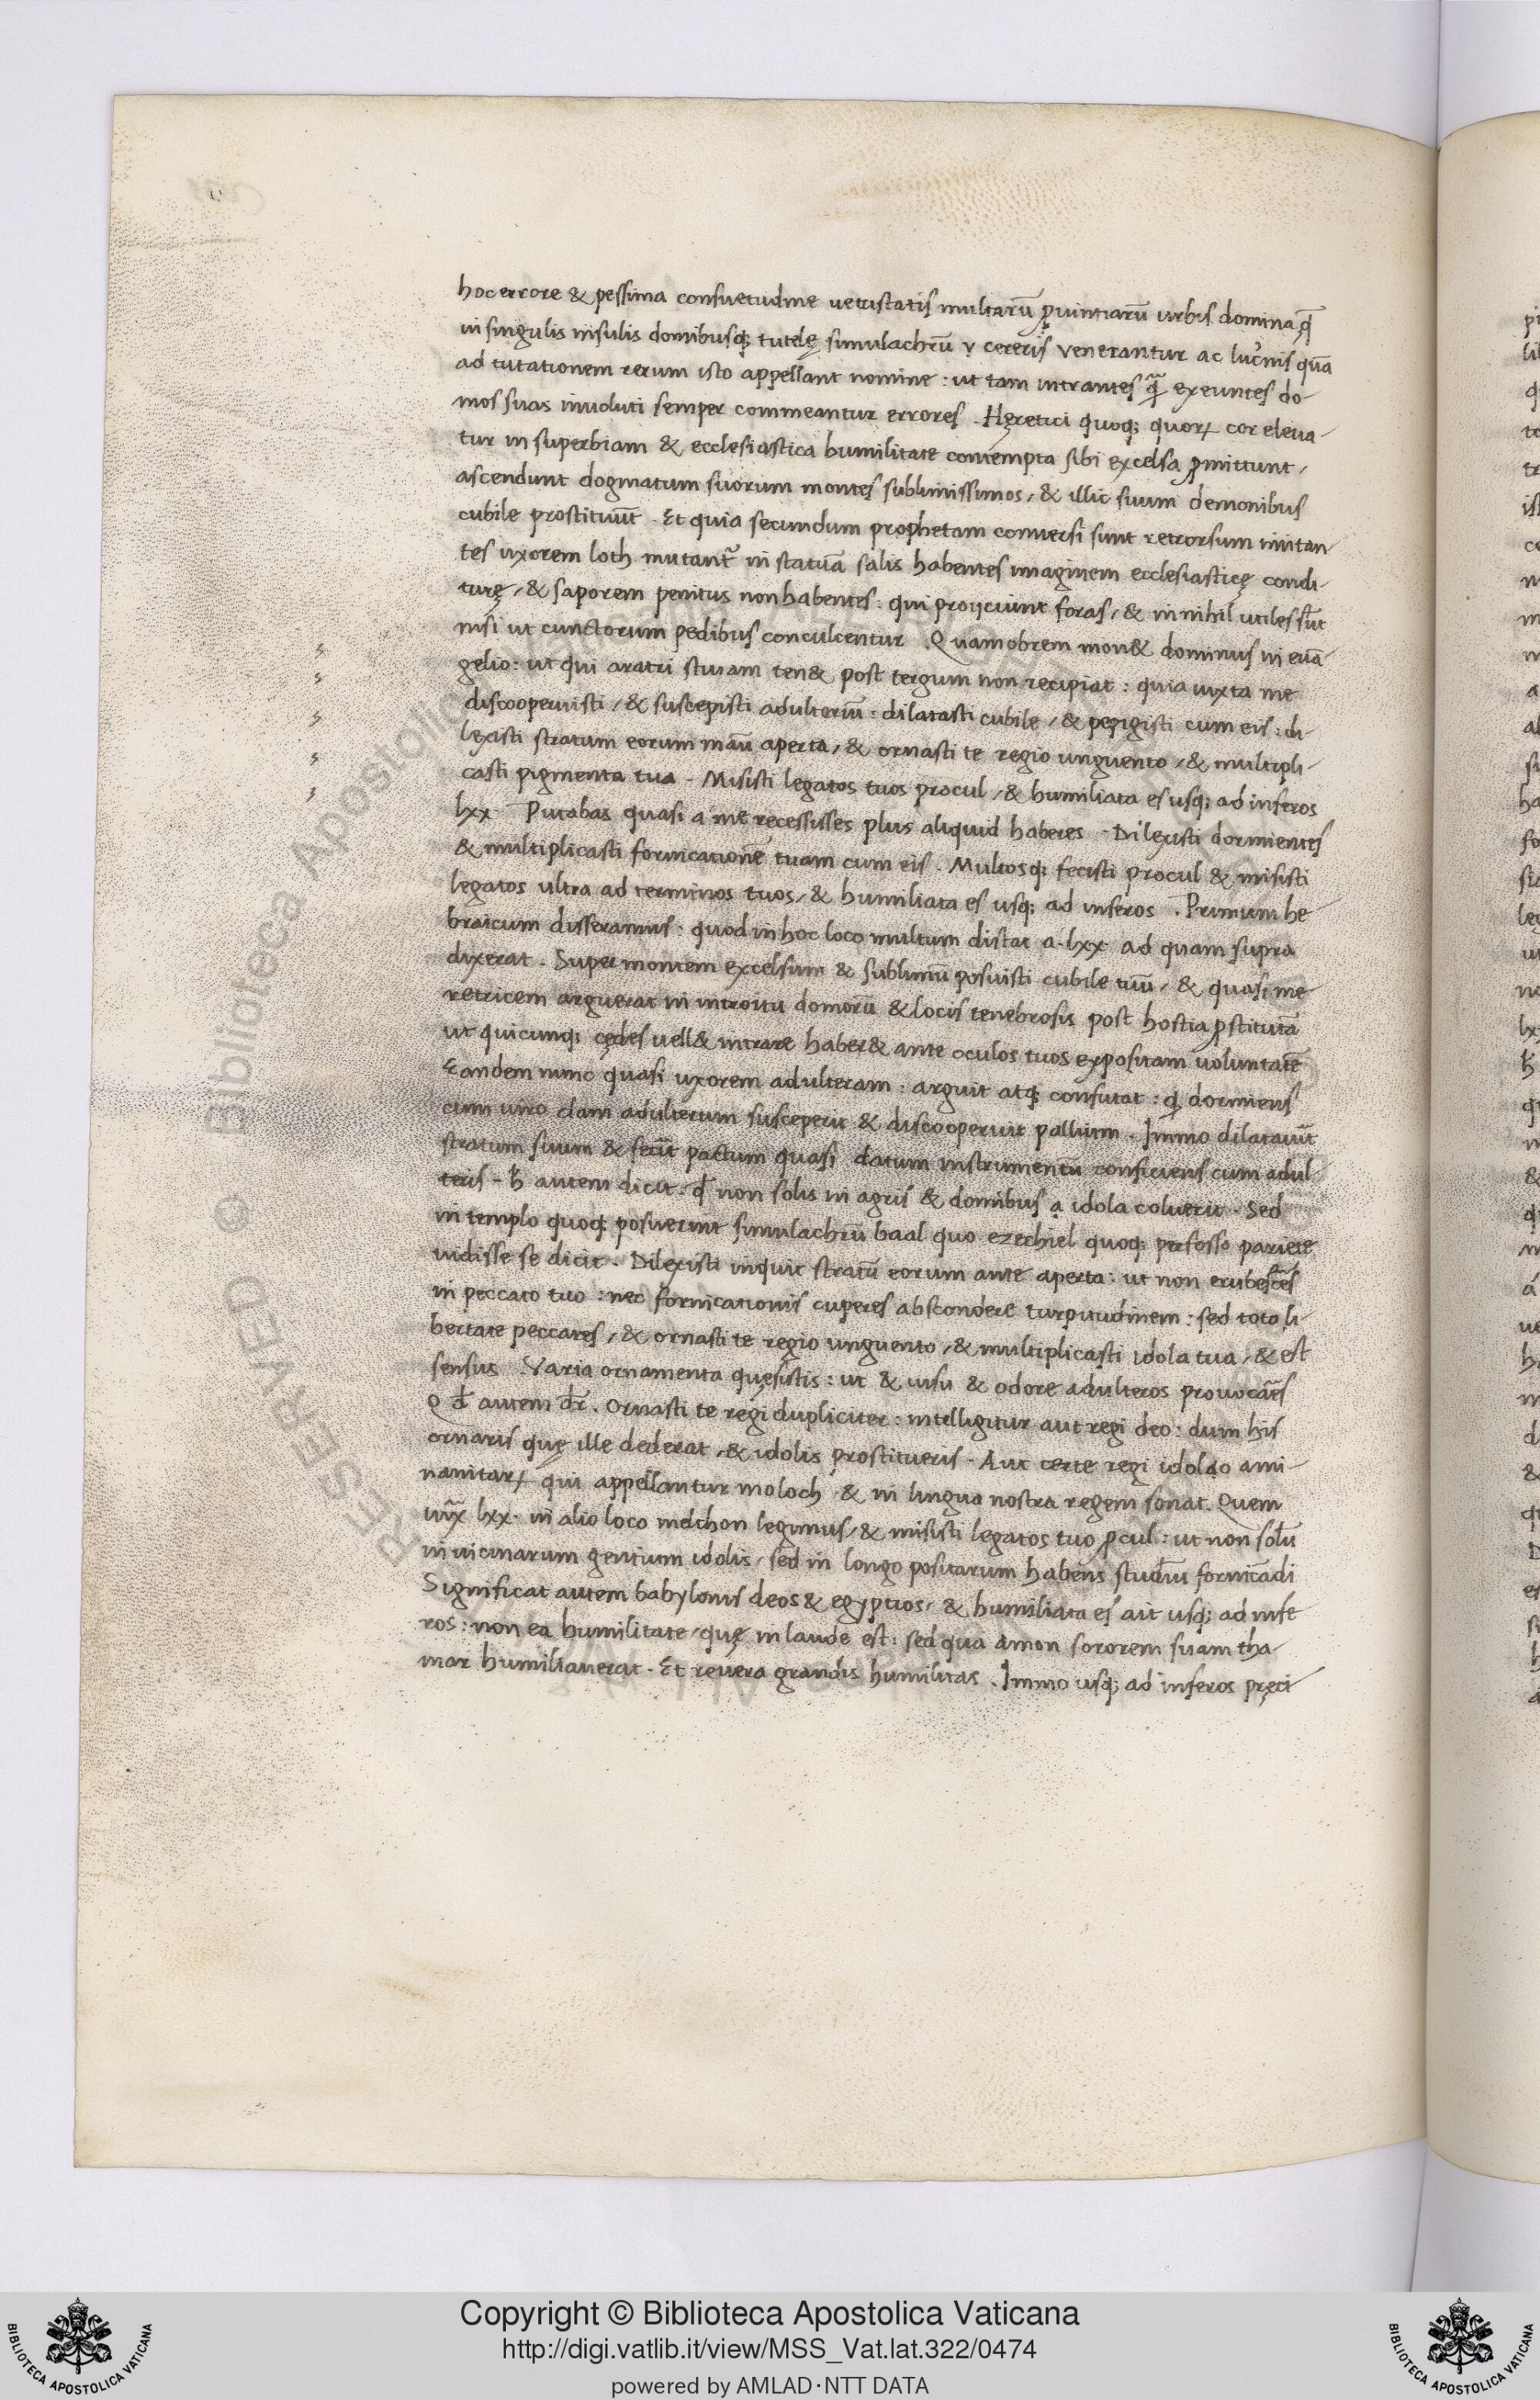 hoc errore & pessima consuetudine uetustatis multarū ꝓuintiarū urbis domina, ꝗ̄
in singulis insulis domibusq; tutelę simulachrū y cereris venerantur ac lucīnis quā
ad tutationem rerum isto appellant nomine : ut tam intrantes ꝗ̄ exeuntes do-
mos suas inuoluti semper commeantur errores . Hęretici quoq; quoꝝ cor eleua-
tur in superbiam & ecclesiastica humilitate contempta sibi excelsa ꝓmittunt /
ascendunt dogmatum suorum montes sublimissimos / & illic suum demonibus
cubile prostituūt . Et quia secundum prophetam conuersi sunt retrorsum imitan-
tes uxorem loth mutant᷑ in statuā salis habentes imaginem ecclesiasticę condi-
turę / & saporem penitus non habentes : qui proijciunt foras / & in nihil utiles sūt
nisi ut cunctorum pedibus conculcentur . Quamobrem mon& dominus in euā-
gelio : ut qui aratri stiuam ten& post tergum non recipiat : quia iuxta me
discooperuisti / & suscepisti adulterū : dilatasti cubile / & pepigisti cum eis : di-
lexisti stratum eorum manū aperta / & ornasti te regio unguento / & multipli-
casti pigmenta tua . Misisti legatos tuos procul / & humiliata es usq; ad inferos
lxx Putabas quasi a me recessisses plus aliquid haberes . Dilexisti dormientes
& multiplicasti fornicationē tuam cum eis . Multosq; fecisti procul & misisti
legatos ultra ad terminos tuos / & humiliata es usq; ad inferos . Primum he-
braicum disseramus : quod in hoc loco multum distat a . lxx ad quam supra
dixerat . Super montem excelsum & sublimū posuisti cubile tuū / & quasi me-
retricem arguerat in introitu domorū & locis tenebrosis post hostia ꝓstitutā
ut quicunq; cędes uell& intrare haber& ante oculos tuos expositam voluntatē
Eandem nunc quasi uxorem adulteram : arguit atq; confutat : ꝙ dormiens
cum uiro clam adulterum susceperit & discooperuit pallium . Immo dilatauīt
stratum suum & fecit pactum quasi datum instrumentū conficiens cum adul-
teris . ħ autem dicit : ꝙ non solis in agris & domibus a idola coluerit . Sed
in templo quoq; posuerunt simulachrū baal quo ezechiel quoq; perfosso pariete
uidisse se dicit . Dilexisti inquit stratū eorum ante aperta : ut non erubesc̄es
in peccato tuo : nec fornicationis cuperes abscondere turpitudinem : sed tota li-
bertate peccares / & ornasti te regio unguento / & multiplicasti idola tua / & est
sensus Varia ornamenta quęsistis : ut & uisu & odore adulteros prouocaēs
Qđ autem dr̄ . Ornasti te regi dupliciter : intelligitur aut regi deo : dum his
ornaris quę ille dederat / & idolis prostitueris . Aut certe regi idolao ami-
nanitaꝝ qui appellantur moloch & in lingua nostra regem sonat . Quem
iux̄ lxx . in alio loco melchon legimus / & misisti legatos tuo ꝓcul : ut non solū
in uicinarum gentium idolis / sed in longo positarum habens studiū fornicādi
Significat autem babylonis deos & egyptios / & humiliata es ait usq; ad infe-
ros : non ea humilitate / quę in laude est : sed qua amon sororem suam tha-
mar humiliauerat . Et reuera grandis humilitas . Immo usq; ad inferos pręci-
Copyright © Biblioteca Apostolica Vaticana
http://digi.vatlib.it/view/MSS_Vat.lat.322/0474
powered by AMLAD·NTT DATA
BIBLIOTECA APOSTOLICA VATICANA
BIBLIOTECA APOSTOLICA VATICANA